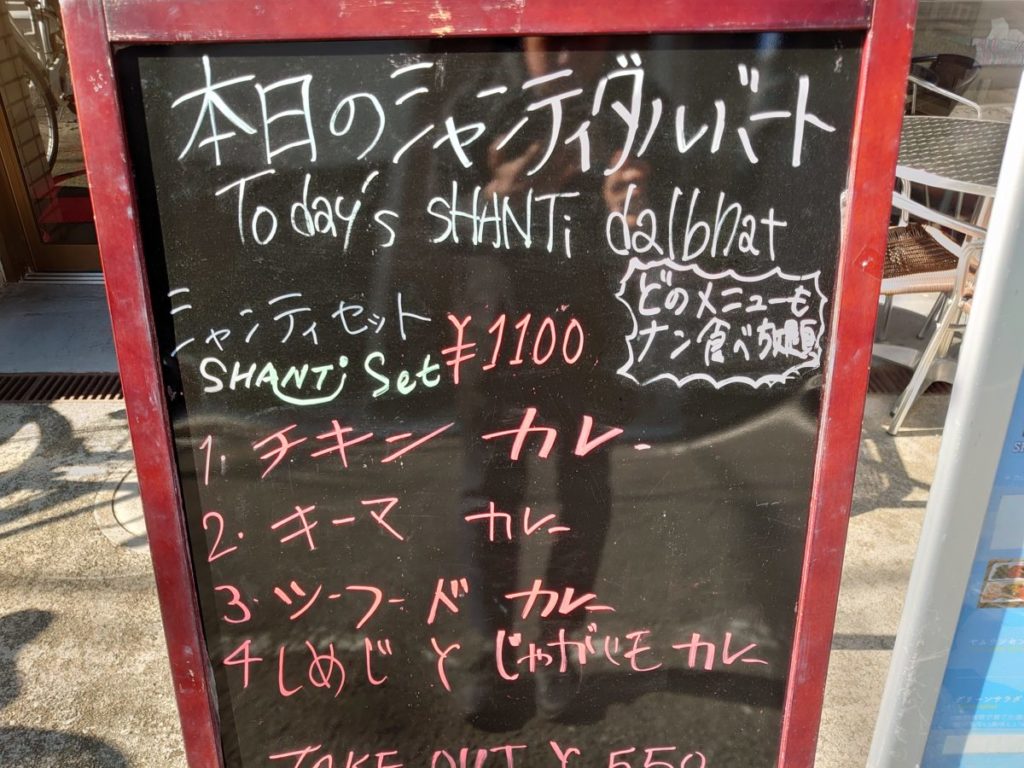 本日のシャンティダルバート
Today's SHANTi dalbhat
どのメニューも
ナン食べ放題
シャンティセット
SHANTi Set ¥1100
1. チキン カレー
2. キーマ カレー
3. ツーフード カレー
4 しめじ と じゃがじも カレー
TAKE OUT ¥550